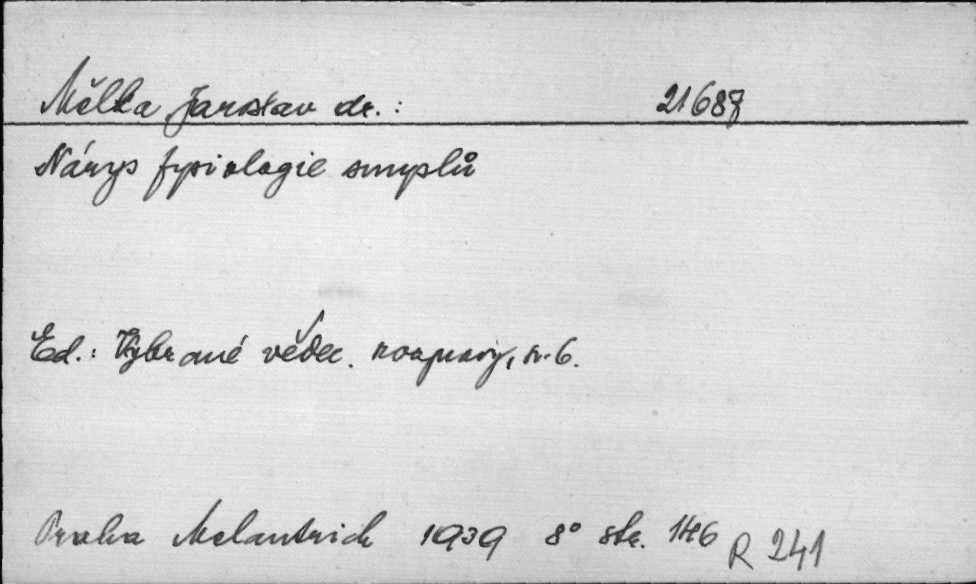 Mělka Jaroslav dr.: 21687
Nárys fysiologie smyslů
Ed.: Vybrané vědec. rozpravy, sv. 6.
Praha Melantrich 1939 8° str. 146 R 241